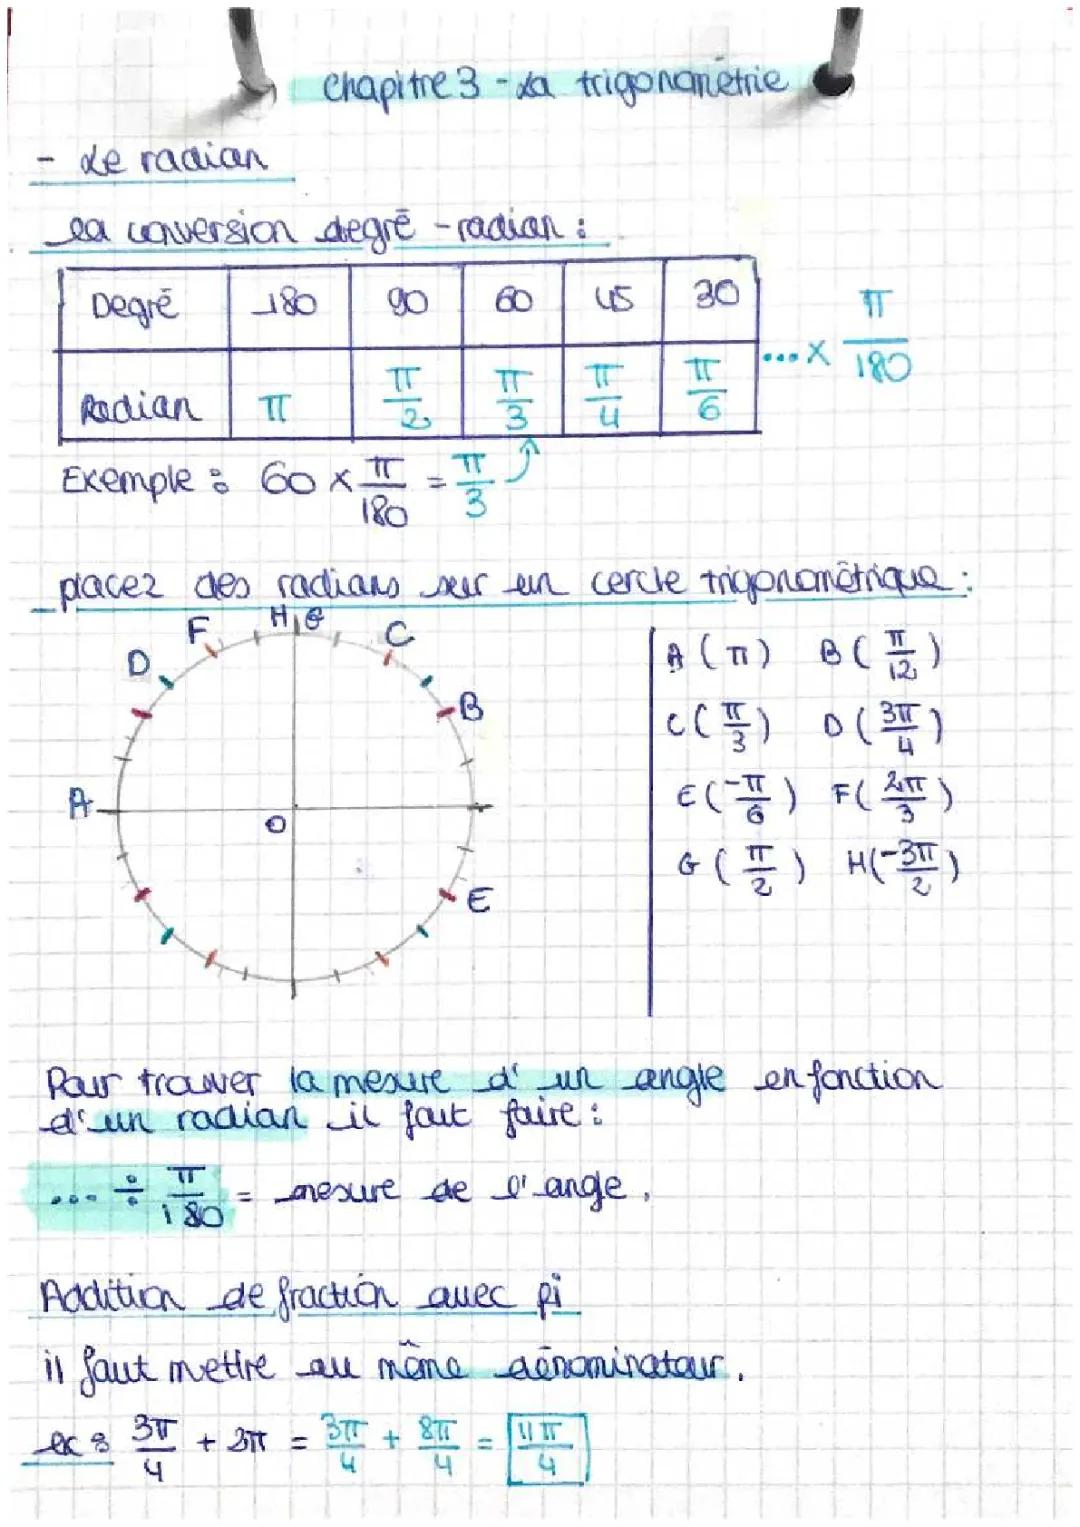 Chapitre 3 - La trigonométrie
- Le radian
La conversion degré - radian :
Degré 180 90 60 45 30
Radian π π/2 π/3 π/4 π/6 ... × π/180
Exemple : 60 × π/180 = π/3
placez des radians sur un cercle trigonométrique :
F H G C
D
B
A
O
E
A (π) B (π/12)
C (π/3) D (3π/4)
E (-π/6) F (2π/3)
G (π/2) H (-3π/2)
Pour trouver la mesure d'un angle en fonction
d'un radian il faut faire :
... ÷ π/180 = mesure de l'angle.
Addition de fraction avec pi
il faut mettre au même dénominateur.
ex : 3π/4 + 2π = 3π/4 + 8π/4 = 11π/4